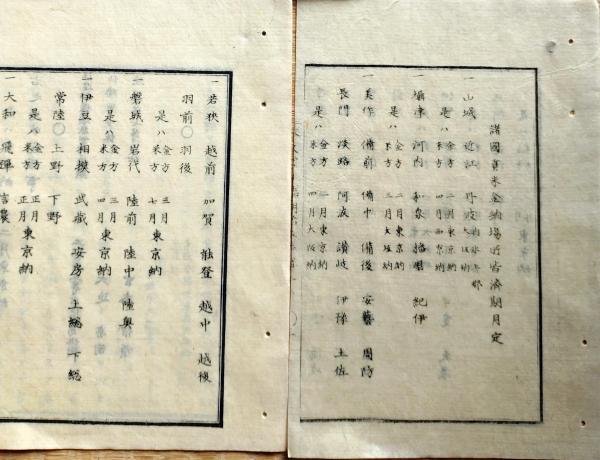 諸國貢米金納場所皆濟期月定
一山城 近江 丹波
是ハ 金方 二月東京納
米方 四月西京納
一攝津 河内 和泉 播磨 紀伊
是ハ 金方 二月東京納
米方 三月大坂納
一美作 備前 備中 備後 安藝 周防
長門 淡路 阿波 讃岐 伊豫 土佐
是ハ 金方 二月東京納
米方 四月大阪納
一若狹 越前 加賀 能登 越中 越後
羽前〇羽後
是ハ 金方 三月
米方 七月 東京納
一磐城 岩代 陸前 陸中 陸奥
是ハ 金方 三月
米方 四月 東京納
一伊豆 相模 武蔵 安房 上総 下総
常陸〇上野 下野
是ハ 金方 正月
米方 正月 東京納
一大和 飛騨 信濃